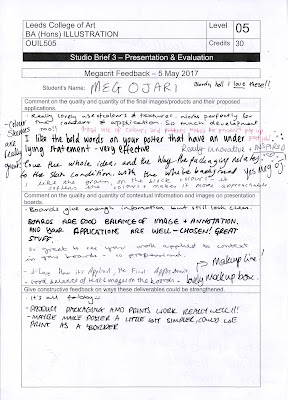 Leeds College of Art
BA (Hons) ILLUSTRATION
OUIL505
Level 05
Credits 30
Studio Brief 3 – Presentation & Evaluation
Megacrit Feedback – 5 May 2017
Student's Name: MEG OJARI
Bloody hell I love these!!
Comment on the quality and quantity of the final images/products and their proposed applications.
Really lovely use of colours & textures. Works perfectly for
the content & application. So much development
too!!
- Colour
schemes
are
really
good
I like the bold words on your poster that have an under
lying statement - very effective
Really innovative + INSPIRED
Love the whole idea, and the way the packaging relates
to the skin condition, with the white background
yes meg oj
Comment on the quality and quantity of contextual information and images on presentation boards.
- Boards give enough information but still look clean
BOARDS ARE GOOD BALANCE OF IMAGE + ANNOTATION,
AND YOUR APPLICATIONS ARE WELL-CHOSEN! GREAT
STUFF.
so great to see your work applied to context
in your boards - so professional.
- Good balance of text & images on the boards -
Makeup line!
lovely mockup box.
Give constructive feedback on ways these deliverables could be strengthened.
- PRODUCT PACKAGING AND PRINTS WORK REALLY WELL!!
- MAYBE MAKE POSTER A LITTLE BIT SIMPLER, COULD USE
PRINT AS A BORDER